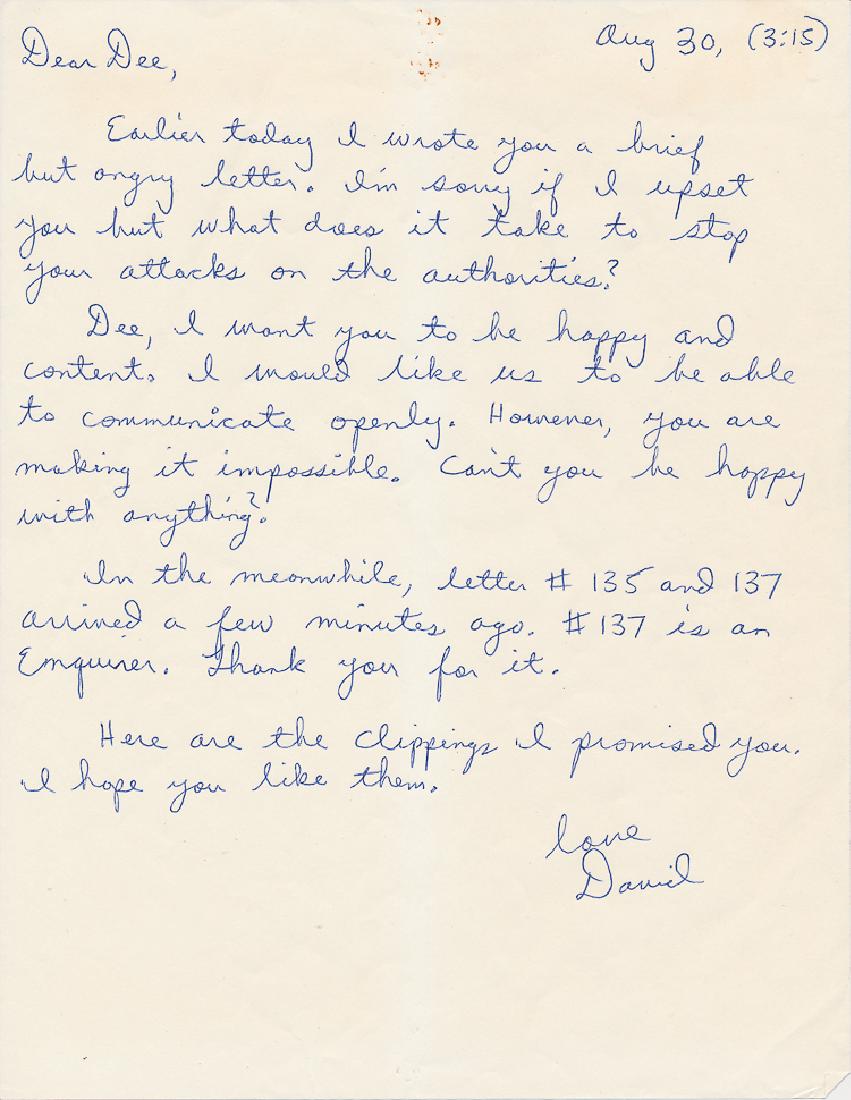 Aug 30, (3:15)
Dear Dee,
Earlier today I wrote you a brief
but angry letter. I'm sorry if I upset
you but what does it take to stop
your attacks on the authorities?
Dee, I want you to be happy and
content. I would like us to be able
to communicate openly. However, you are
making it impossible. Can't you be happy
with anything?
In the meanwhile, letter # 135 and 137
arrived a few minutes ago. #137 is an
Enquirer. Thank you for it.
Here are the clippings I promised you.
I hope you like them.
love
David